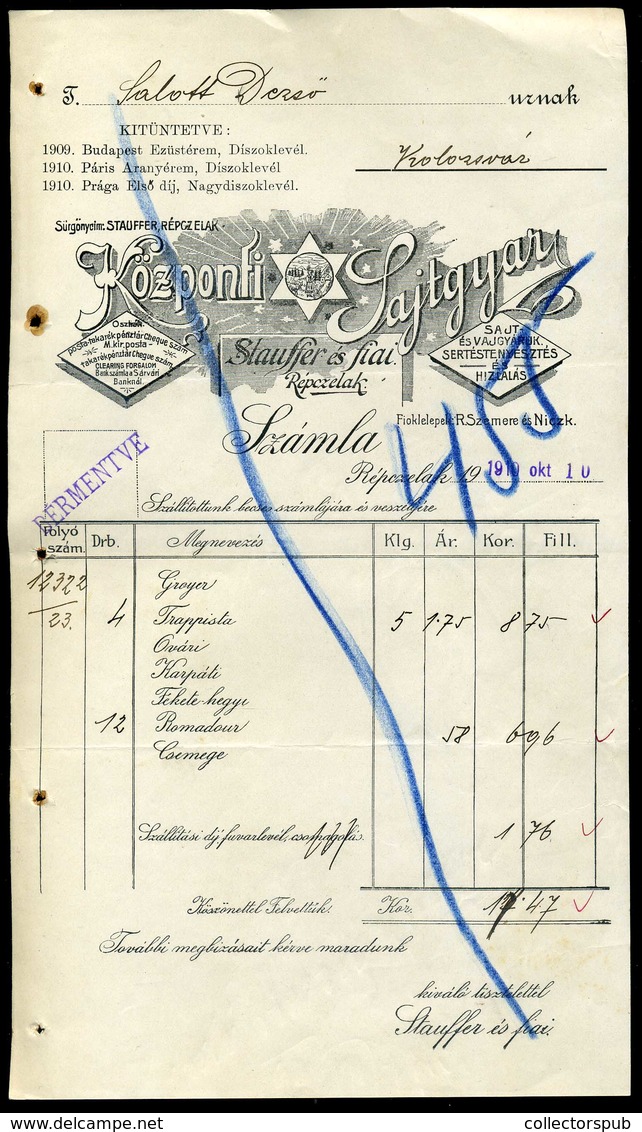 T. Salott Dezső urnak
KITÜNTETVE:
1909. Budapest Ezüstérem, Díszoklevél.
1910. Páris Aranyérem, Díszoklevél
1910. Prága Első díj, Nagydiszoklevél.
Kolozsvár
Sürgönyeim: STAUFFER, RÉPCZELAK.
Központi Sajtgyár
Osztrák
posta-takarékpénztár Cheque szám
M. kir. posta-
takarékpénztár Cheque szám
CLEARING FORGALOM
Bankszámla a Sárvári
Banknál.
Stauffer és fiai.
Répczelak.
SAJT
ÉS VAJGYÁRUK.
SERTÉSTENYÉSZTÉS
ÉS
HIZLALÁS
Fióktelepek: R. Szemere és Niczk.
Számla
Répczelak 19 1910 okt 10
BÉRMENTVE
Szállítottunk becses számlájára és veszélyére
Folyó szám. Drb. Megnevezés Klg. Ár. Kor. Fill.
12322 Groyer
23. 4 Trappista 5 1·75 8 75
Óvári
Kárpáti
Fekete-hegyi
12 Romadour 58 6 96
Csemege
Szállítási díj fuvarlevél, csomagolás 1 76
Köszönettel Felvettük. Kor. 17·47
További megbizásait kérve maradunk
kiváló tisztelettel
Stauffer és fiai.
www.delcampe.net
collectorspub